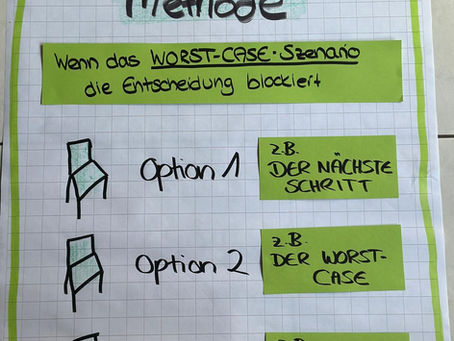 Methode
Wenn das WORST-CASE-Szenario
die Entscheidung blockiert
Option 1
z.B.
DER NÄCHSTE
SCHRITT
Option 2
z.B.
DER WORST-
CASE